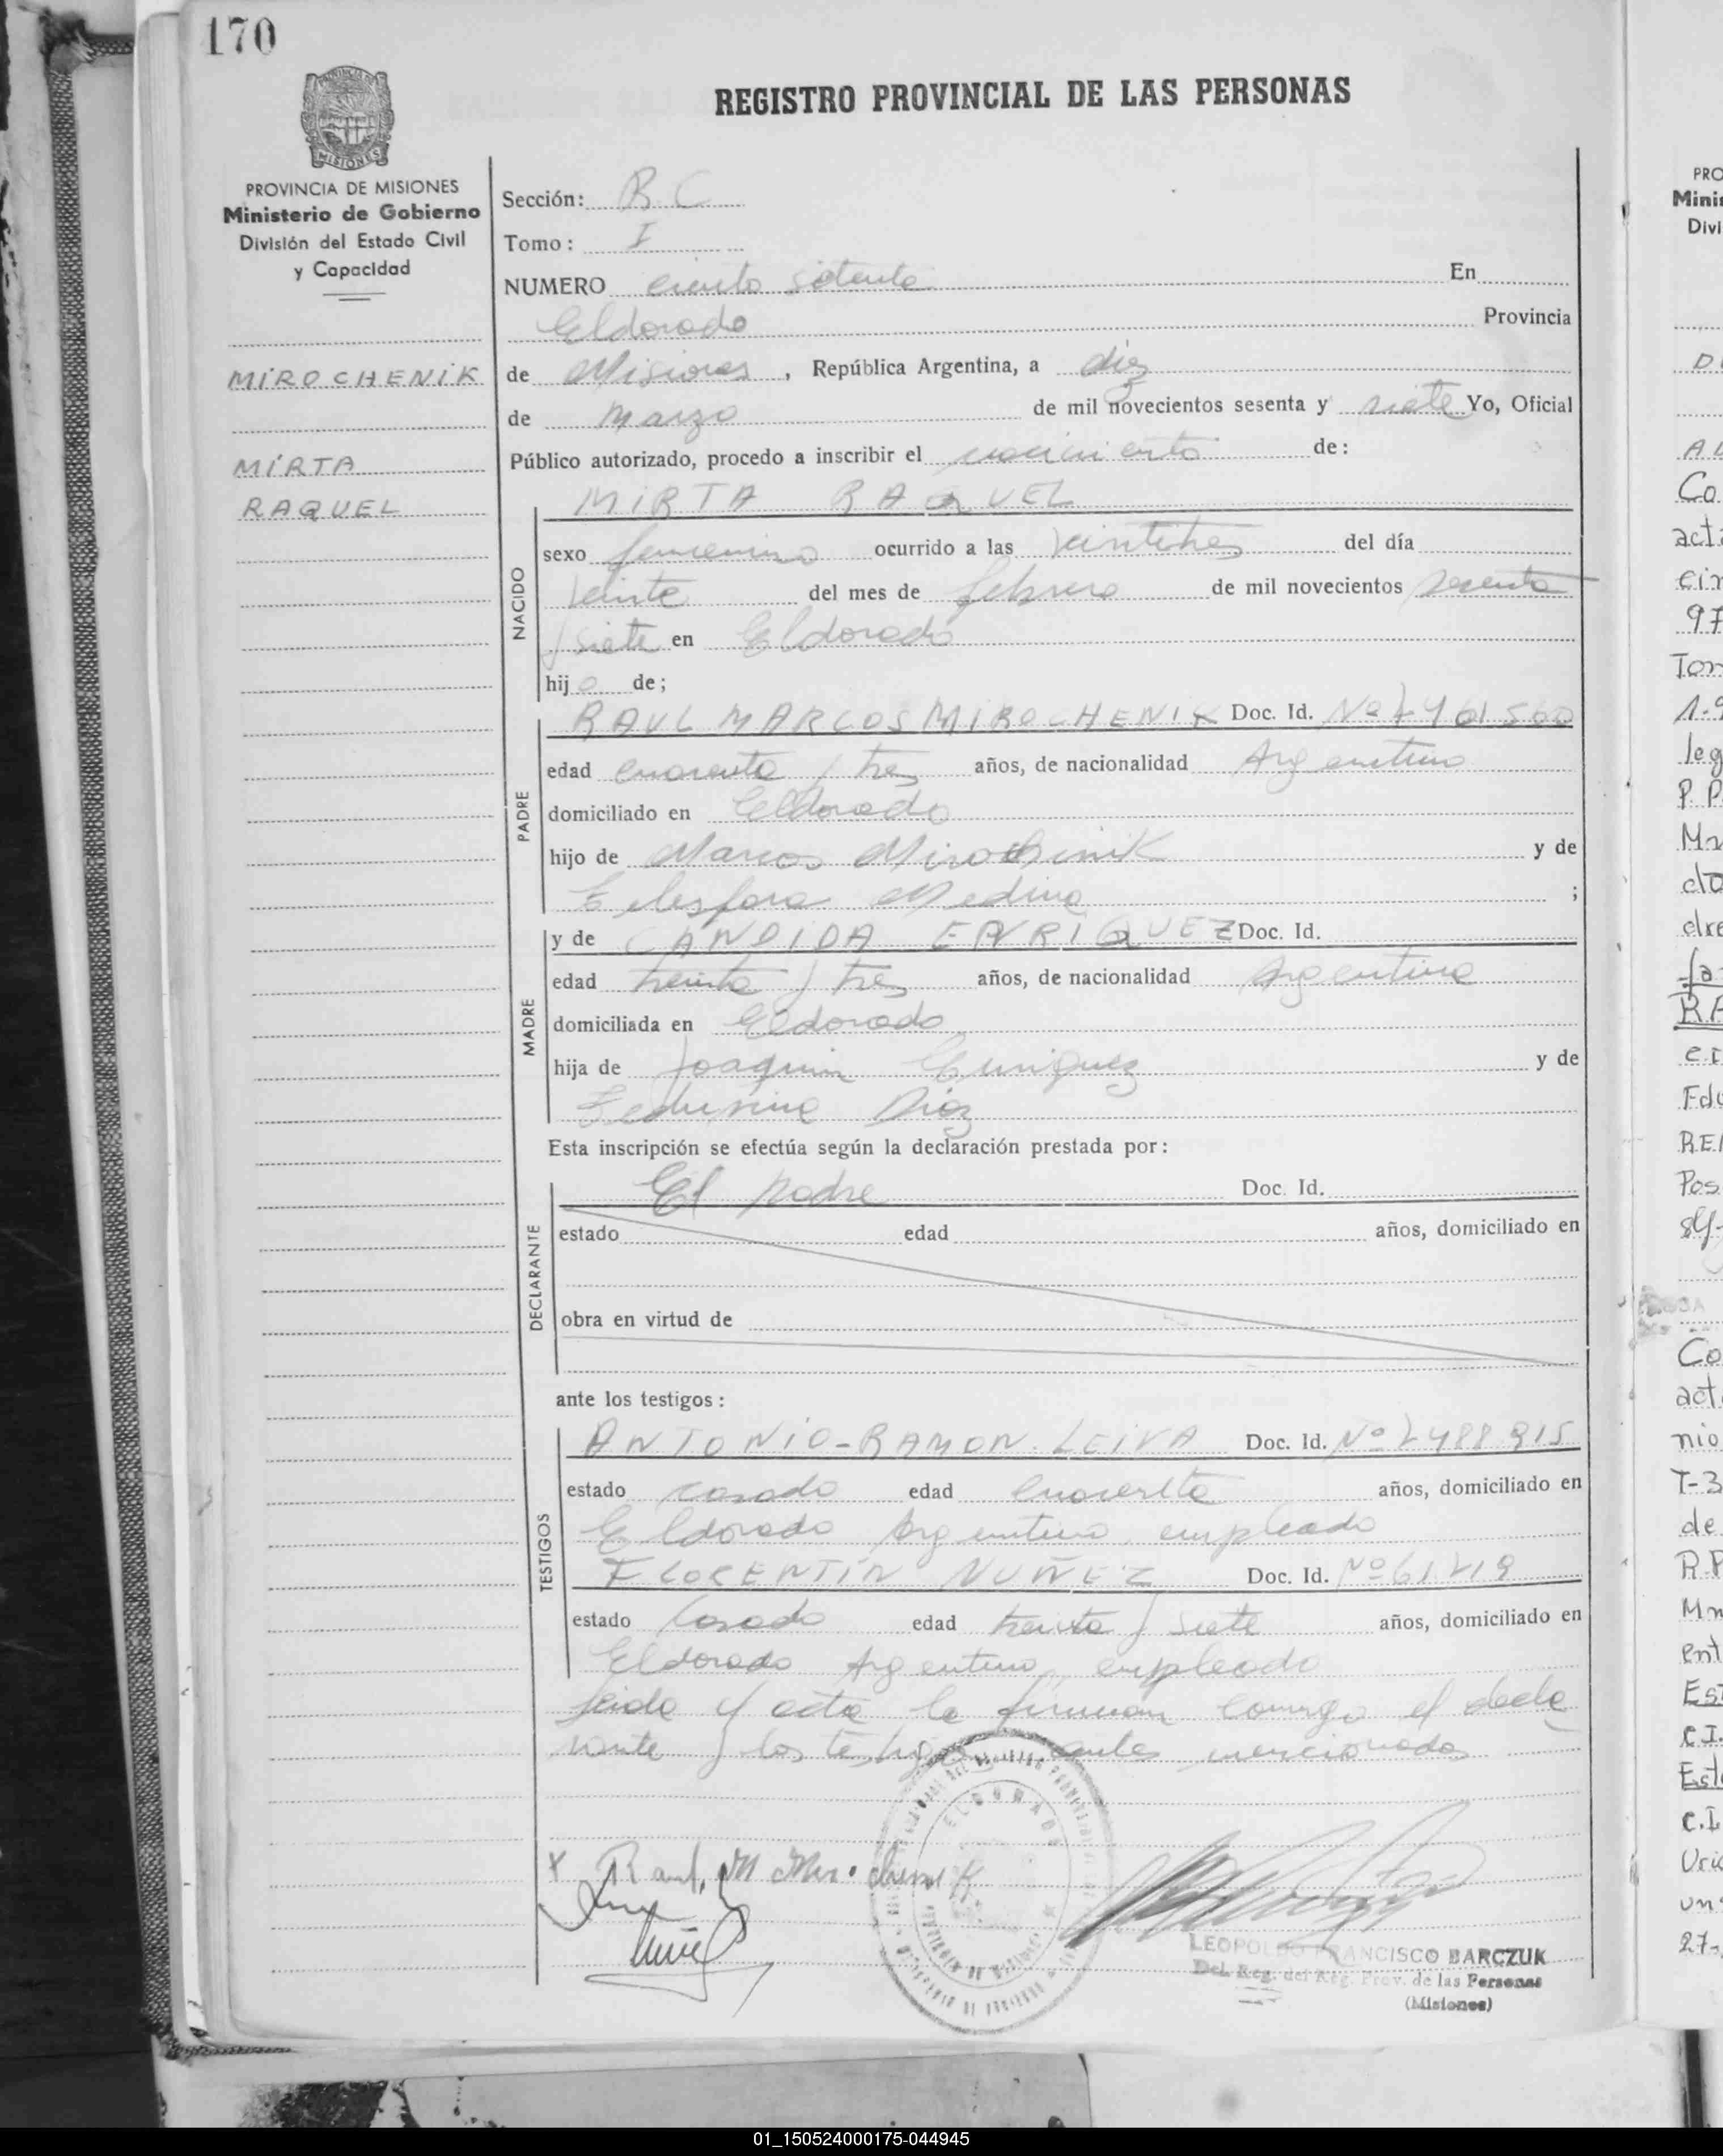 170
REGISTRO PROVINCIAL DE LAS PERSONAS
MISIONES
PROVINCIA DE MISIONES
Ministerio de Gobierno
División del Estado Civil
y Capacidad
MIROCHENIK
MIRTA
RAQUEL
Sección: R.C
Tomo: I
NUMERO ciento setenta En
Eldorado Provincia
de Misiones, República Argentina, a diez
de Marzo de mil novecientos sesenta y siete Yo, Oficial
Público autorizado, procedo a inscribir el nacimiento de:
MIRTA RAQUEL
NACIDO
sexo femenino ocurrido a las veintitres del día
veinte del mes de febrero de mil novecientos sesenta
y siete en Eldorado
hijo de;
PADRE
RAUL MARCOS MIROCHENIK Doc. Id. Nº
edad cuarenta y tres años, de nacionalidad Argentino
domiciliado en Eldorado
hijo de Marcos Mirochenik y de
Telesfora Medina ;
MADRE
y de CANDIDA ENRIQUEZ Doc. Id.
edad treinta y tres años, de nacionalidad Argentina
domiciliada en Eldorado
hija de Joaquin Enriquez y de
Diaz
Esta inscripción se efectúa según la declaración prestada por:
DECLARANTE
El padre Doc. Id.
estado edad años, domiciliado en
obra en virtud de
ante los testigos:
TESTIGOS
ANTONIO-RAMON LEIVA Doc. Id. Nº
estado casado edad cuarenta años, domiciliado en
Eldorado Argentino, empleado
FLORENTIN NUÑEZ Doc. Id. Nº
estado casado edad treinta y siete años, domiciliado en
Eldorado Argentino, empleado
leida el acta la firman conmigo el decla
rante y los testigos antes mencionados
Raul, M
Nuñez
ELDORADO
LEOPOLDO FRANCISCO BARCZUK
Del. Reg. del Reg. Prov. de las Personas
(Misiones)
01_150524000175-044945